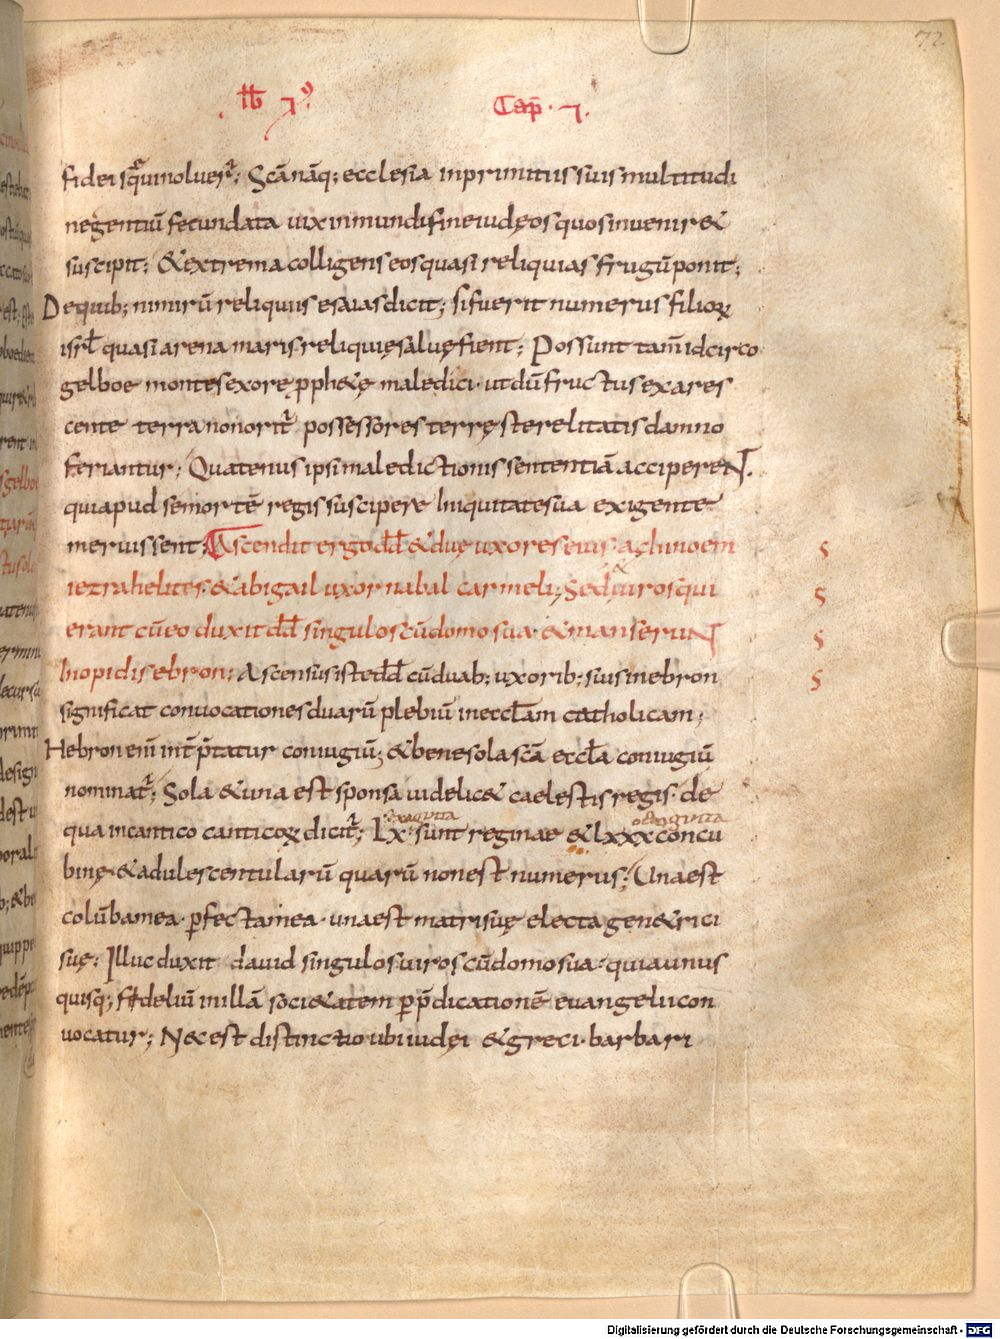 72
lib 2⁹ Cap̄. 2.
fidei sequi noluerᷣ; Scā nāq; ecclesia inprimitiis suis multitudi
ne gentiū fecundata uix inmundi fine iudęos quos inuenir&
suscipit; & extrema colligens eos quasi reliquias frugū ponit;
De quib; nimirū reliquiis esaias dicit; si fuerit numerus filioꝝ
isrł quasi arena maris reliquię saluę fient; Possunt tam̄ idcirco
gelboe montes ex ore ꝓph&ę maledici· ut dū fructus ex ares
cente terra non oritᷣ possessores terrę sterelitatis damno
feriantur; Quatenus ipsi maledictionis sententiā acciperent.
qui apud se mortē regis suscipere Iniquitate sua exigente
meruissent; Ascendit ergo dd̄ & duę uxores eius· achinoem
iezrahelites· & abigail uxor nabal carmeli; Sed & uiros qui
erant cū eo duxit dd̄ singulos cū domo sua· & manserunt
In opidis ebron; Ascensus iste dd̄ cū duab; uxorib; suis in ebron
significat conuocationes duarū plebiū in eccłam catholicam;
Hebron eni̅ int̄p̄tatur coniugiū; & bene sola scā eccła coniugiū
nominatᷣ; Sola & una est sponsa uidelic& caelestis regis· de
qua in cantico canticoꝝ dicitᷣ; Lx· sunt reginae & lxxx concu
exaginta octoginta
binę· & adulescentularū quarū non est numerus; Una est
colūba mea· ꝑfecta mea· una est matri suę electa gen&rici
suę; Illuc duxit dauid singulos uiros cū domo sua· quia unus
quisq; fidelium in illā soci&atem ꝑ p̄dicationē euangelii con
uocatur; Nec est distinctio ubi iudęi & greci· barbari
s
s
s
s
Digitalisierung gefördert durch die Deutsche Forschungsgemeinschaft - DFG